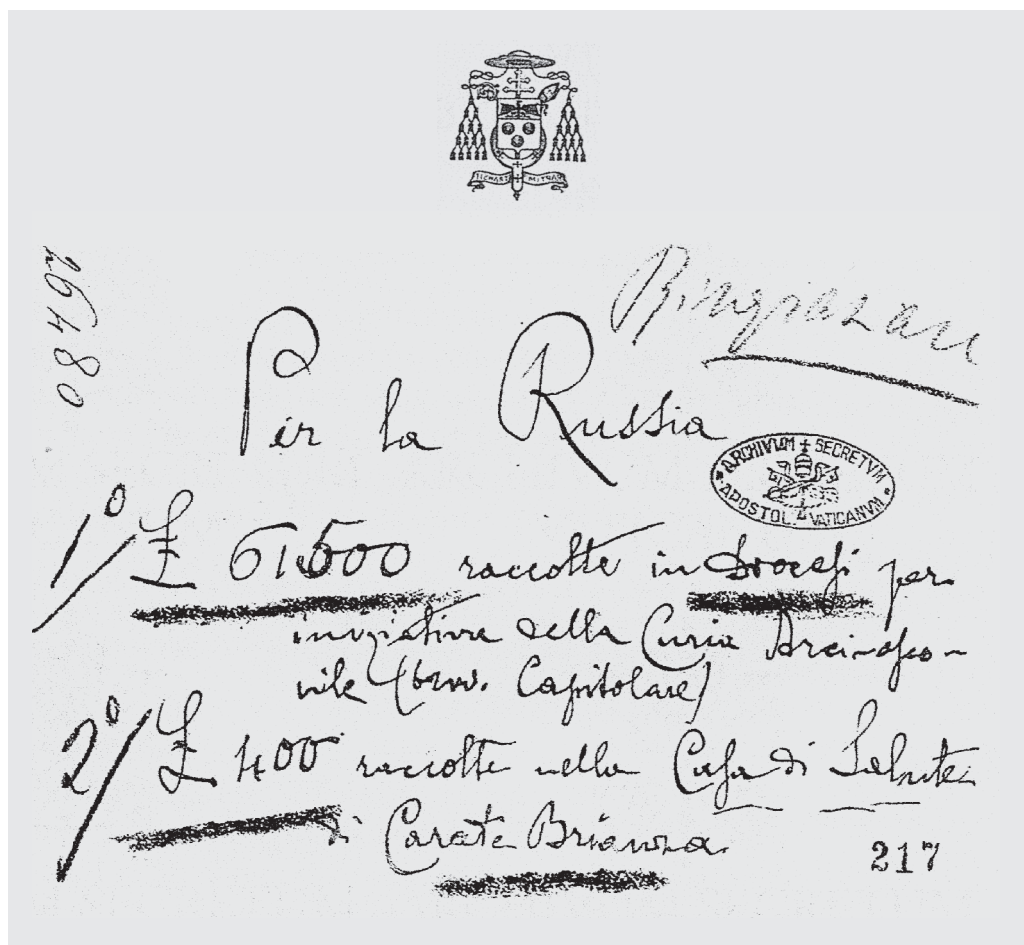 26480
Ringraziare
Per la Russia
ARCHIVVM SECRETVM APOSTOL. VATICANVM
1º £ 61500 raccolte in Diocesi per
iniziativa della Curia Arcivesco-
vile ( Capitolare)
2º £ 400 raccolte nella Casa di Salute
di Carate Brianza.
217